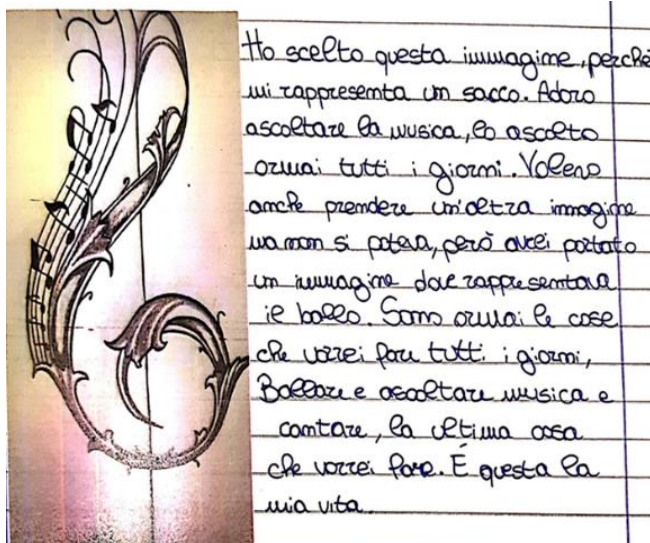 Ho scelto questa immagine, perchè
mi rappresenta un sacco. Adoro
ascoltare la musica, lo ascolto
ormai tutti i giorni. Volevo
anche prendere un'altra immagine
ma non si poteva, però avrei portato
un immagine dove rappresentava
il ballo. Sono ormai le cose
che vorrei fare tutti i giorni,
Ballare e ascoltare musica e
cantare, la ultima cosa
che vorrei fare. É questa la
mia vita.